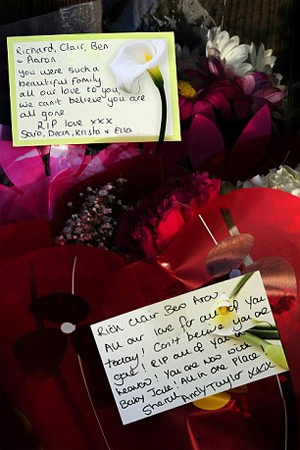 Richard, Clair, Ben
& Aaron.
you were such a
beautiful family
all our love to you
we can't believe you are
all gone
RIP love xxx
Sara, Dean, Krista & Ella
Rich Clair Ben Aron
All our love for all of you
today! Can't believe you are
gone! RIP all of you
heaven! You are now with
Baby Jake! All in one Place
Sheryl Andy Taylor xxxx